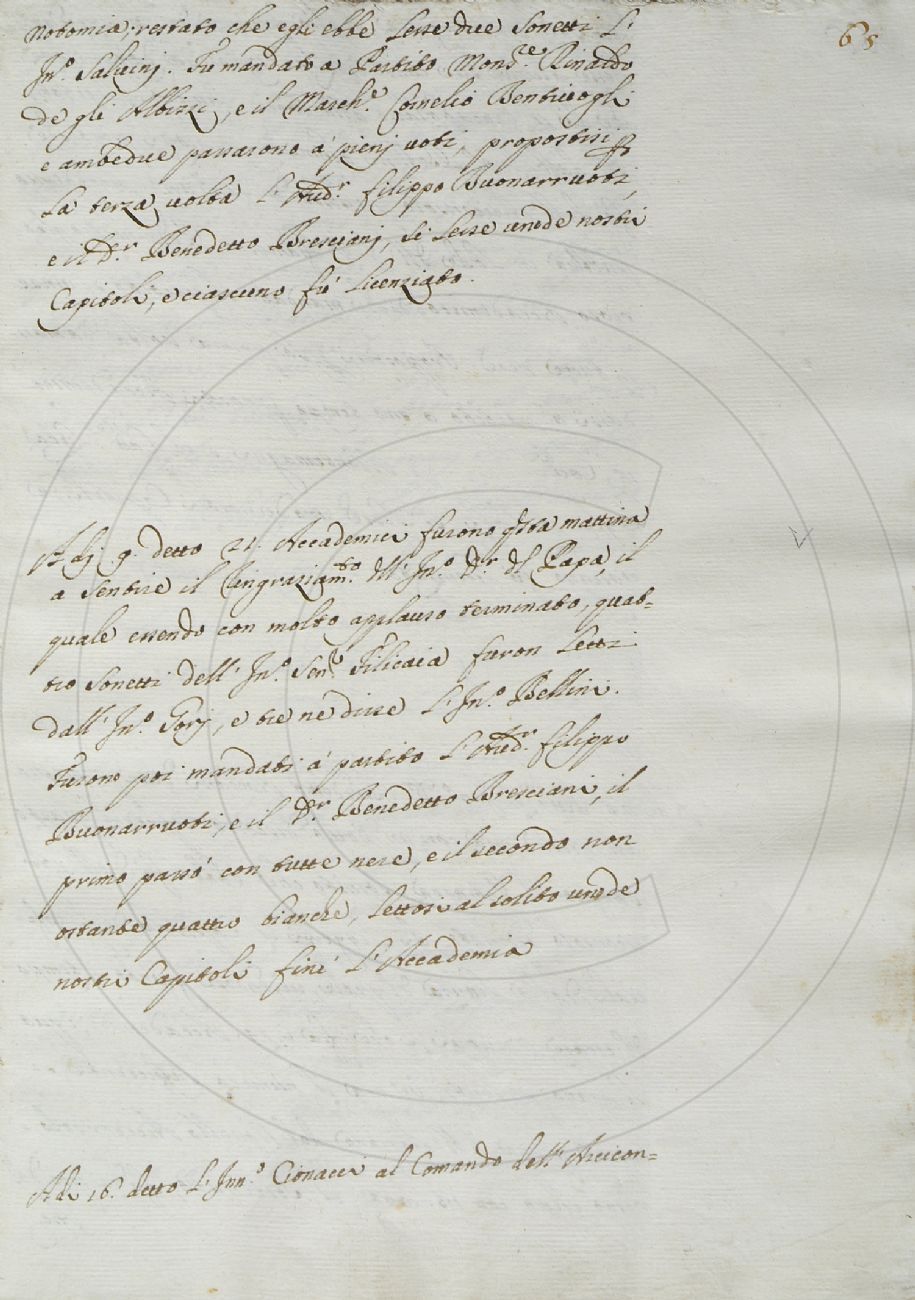 65
notomia; restato che egli ebbe Lesse due Sonetti L'
Inn.º Salvinj. Fu mandato a Partito Mons.re Rinaldo
de gli Albizzi, e il March.e Cornelio Bentivogli
e ambedue passarono à pienj voti, propostisi p
La terza volta L'Aud.r Filippo Buonarruoti,
e il D.r Benedetto Brescianj, si Lesse uno de nostri
Capitoli, e ciascuno fù Licenziato.
A dj 9. detto 21. Accademici furono questa mattina
a Sentire il Ringraziam.to dell' Inn.º D.r del Papa, il
quale essendo con molto applauso terminato, quat=
tro Sonetti dell' Inn.º Sen.re Filicaia furon Letti
dall' Inn.º Gorj, e tre ne disse L'Inn.º Bellini.
Furono poi mandati à partito L'Aud.r Filippo
Buonarruoti, e il D.r Benedetto Bresciani, il
primo passò con tutte nere, e il secondo non
ostante quattro bianche, Lettosi al solito uno de
nostri Capitoli finì L'Accademia
Adi 16. detto L'Inn.º Cionacci al Comando dell' Arcicon=